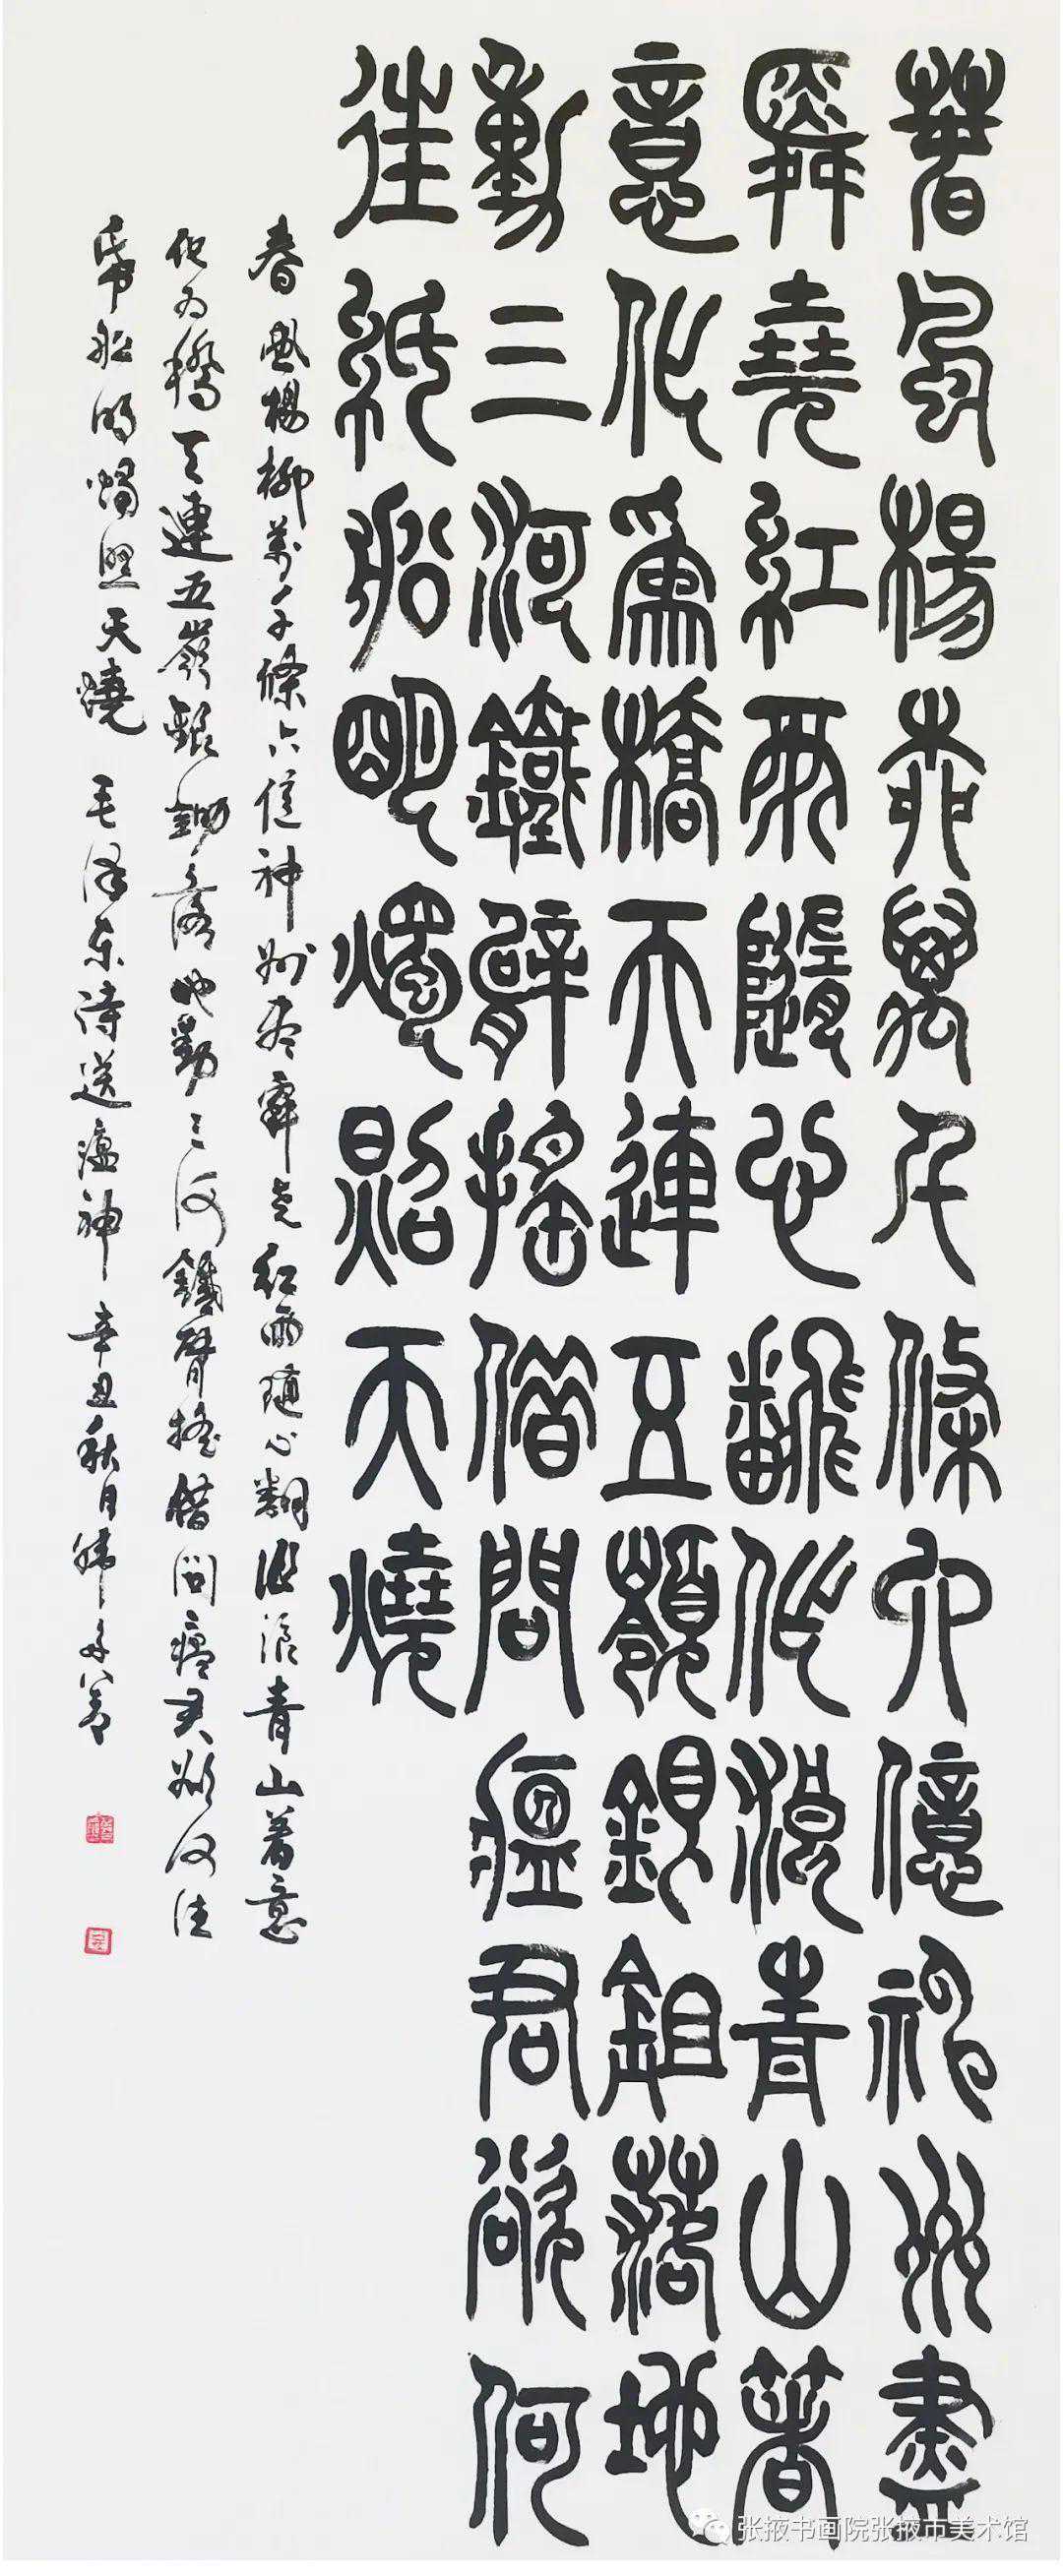 春風楊柳萬千條六億神州盡
舜堯紅雨隨心翻作浪青山著
意化為橋天連五嶺銀鉏落地
動三河鐵臂搖借問瘟君欲何
往紙船明燭照天燒
春風楊柳萬千條六億神州盡舜堯紅雨隨心翻作浪青山著意
化為橋天連五嶺銀鋤落地動三河鐵臂搖借問瘟君欲何往
紙船明燭照天燒 毛澤東詩送瘟神 辛丑秋月
张掖书画院张掖市美术馆